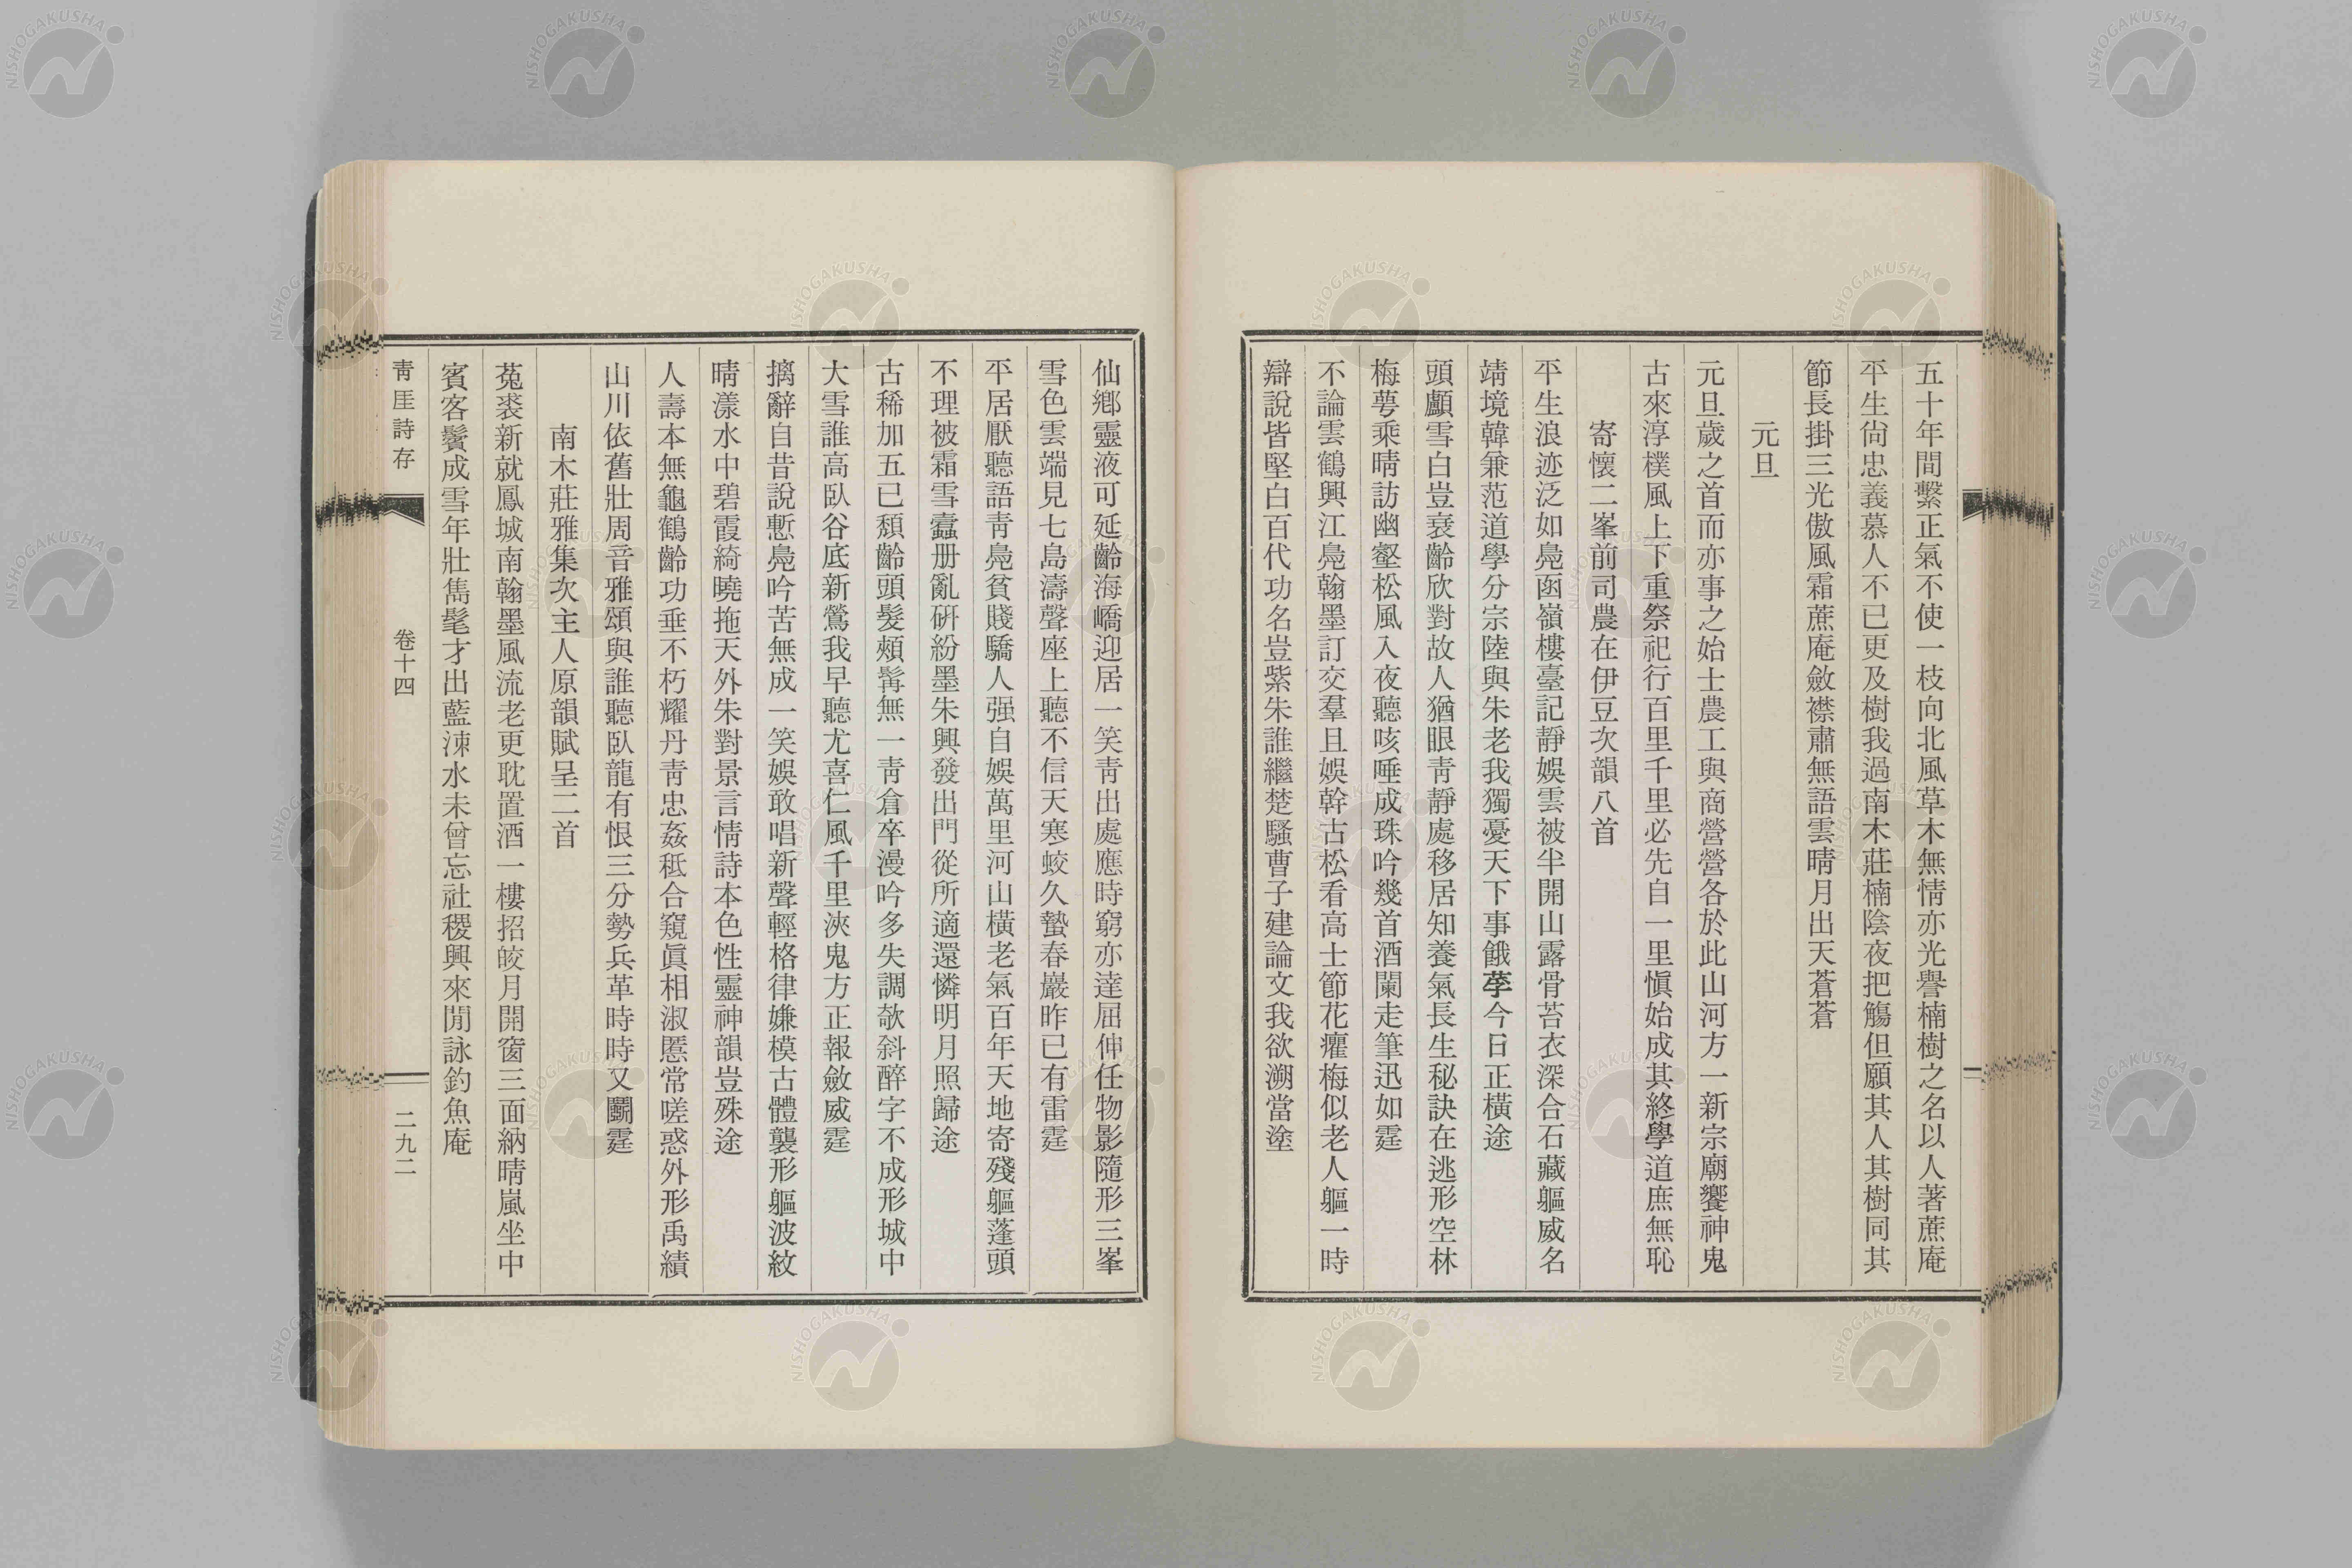 五十年間繫正氣不使一枝向北風草木無情亦光譽楠樹之名以人著蔗庵
平生尙忠義慕人不已更及樹我過南木莊楠陰夜把觴但願其人其樹同其
節長掛三光傲風霜蔗庵斂襟肅無語雲晴月出天蒼蒼
元旦
元旦歲之首而亦事之始士農工與商營營各於此山河方一新宗廟饗神鬼
古來淳樸風上下重祭祀行百里千里必先自一里愼始成其終學道庶無恥
寄懷二峯前司農在伊豆次韻八首
平生浪迹泛如鳧函嶺樓臺記靜娛雲被半開山露骨苔衣深合石藏軀威名
靖境韓兼范道學分宗陸與朱老我獨憂天下事餓莩今日正橫途
頭顱雪白豈衰齡欣對故人猶眼靑靜處移居知養氣長生秘訣在逃形空林
梅萼乘晴訪幽壑松風入夜聽咳唾成珠吟幾首酒闌走筆迅如霆
不論雲鶴興江鳧翰墨訂交羣且娛幹古松看高士節花癯梅似老人軀一時
辯說皆堅白百代功名豈紫朱誰繼楚騷曹子建論文我欲溯當塗
仙鄕靈液可延齡海嶠迎居一笑靑出處應時窮亦達屈伸任物影隨形三峯
雪色雲端見七島濤聲座上聽不信天寒蛟久蟄春巖昨已有雷霆
平居厭聽語靑鳧貧賤驕人强自娛萬里河山橫老氣百年天地寄殘軀蓬頭
不理被霜雪蠹册亂硏紛墨朱興發出門從所適還憐明月照歸途
古稀加五已頹齡頭髮頰髯無一靑倉卒漫吟多失調欹斜醉字不成形城中
大雪誰高臥谷底新鶯我早聽尤喜仁風千里浹鬼方正報斂威霆
摛辭自昔說慙鳧吟苦無成一笑娛敢唱新聲輕格律嫌模古體襲形軀波紋
晴漾水中碧霞綺曉拖天外朱對景言情詩本色性靈神韻豈殊途
人壽本無龜鶴齡功垂不朽耀丹靑忠姦秪合窺眞相淑慝常嗟惑外形禹績
山川依舊壯周音雅頌與誰聽臥龍有恨三分勢兵革時時又鬭霆
南木莊雅集次主人原韻賦呈二首
菟裘新就鳳城南翰墨風流老更耽置酒一樓招皎月開窗三面納晴嵐坐中
賓客鬢成雪年壯雋髦才出藍涑水未曾忘社稷興來閒詠釣魚庵
靑厓詩存
卷十四
二九二